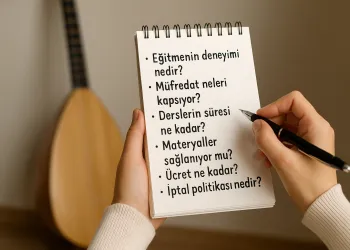 · Eğitmenin deneyimi
nedir?
· Müfredat neleri
kapsıyor?
· Derslerin süresi
ne kadar?
· Materyaller
sağlanıyor mu?
· Ücret ne kadar?
· İptal politikası nedir?